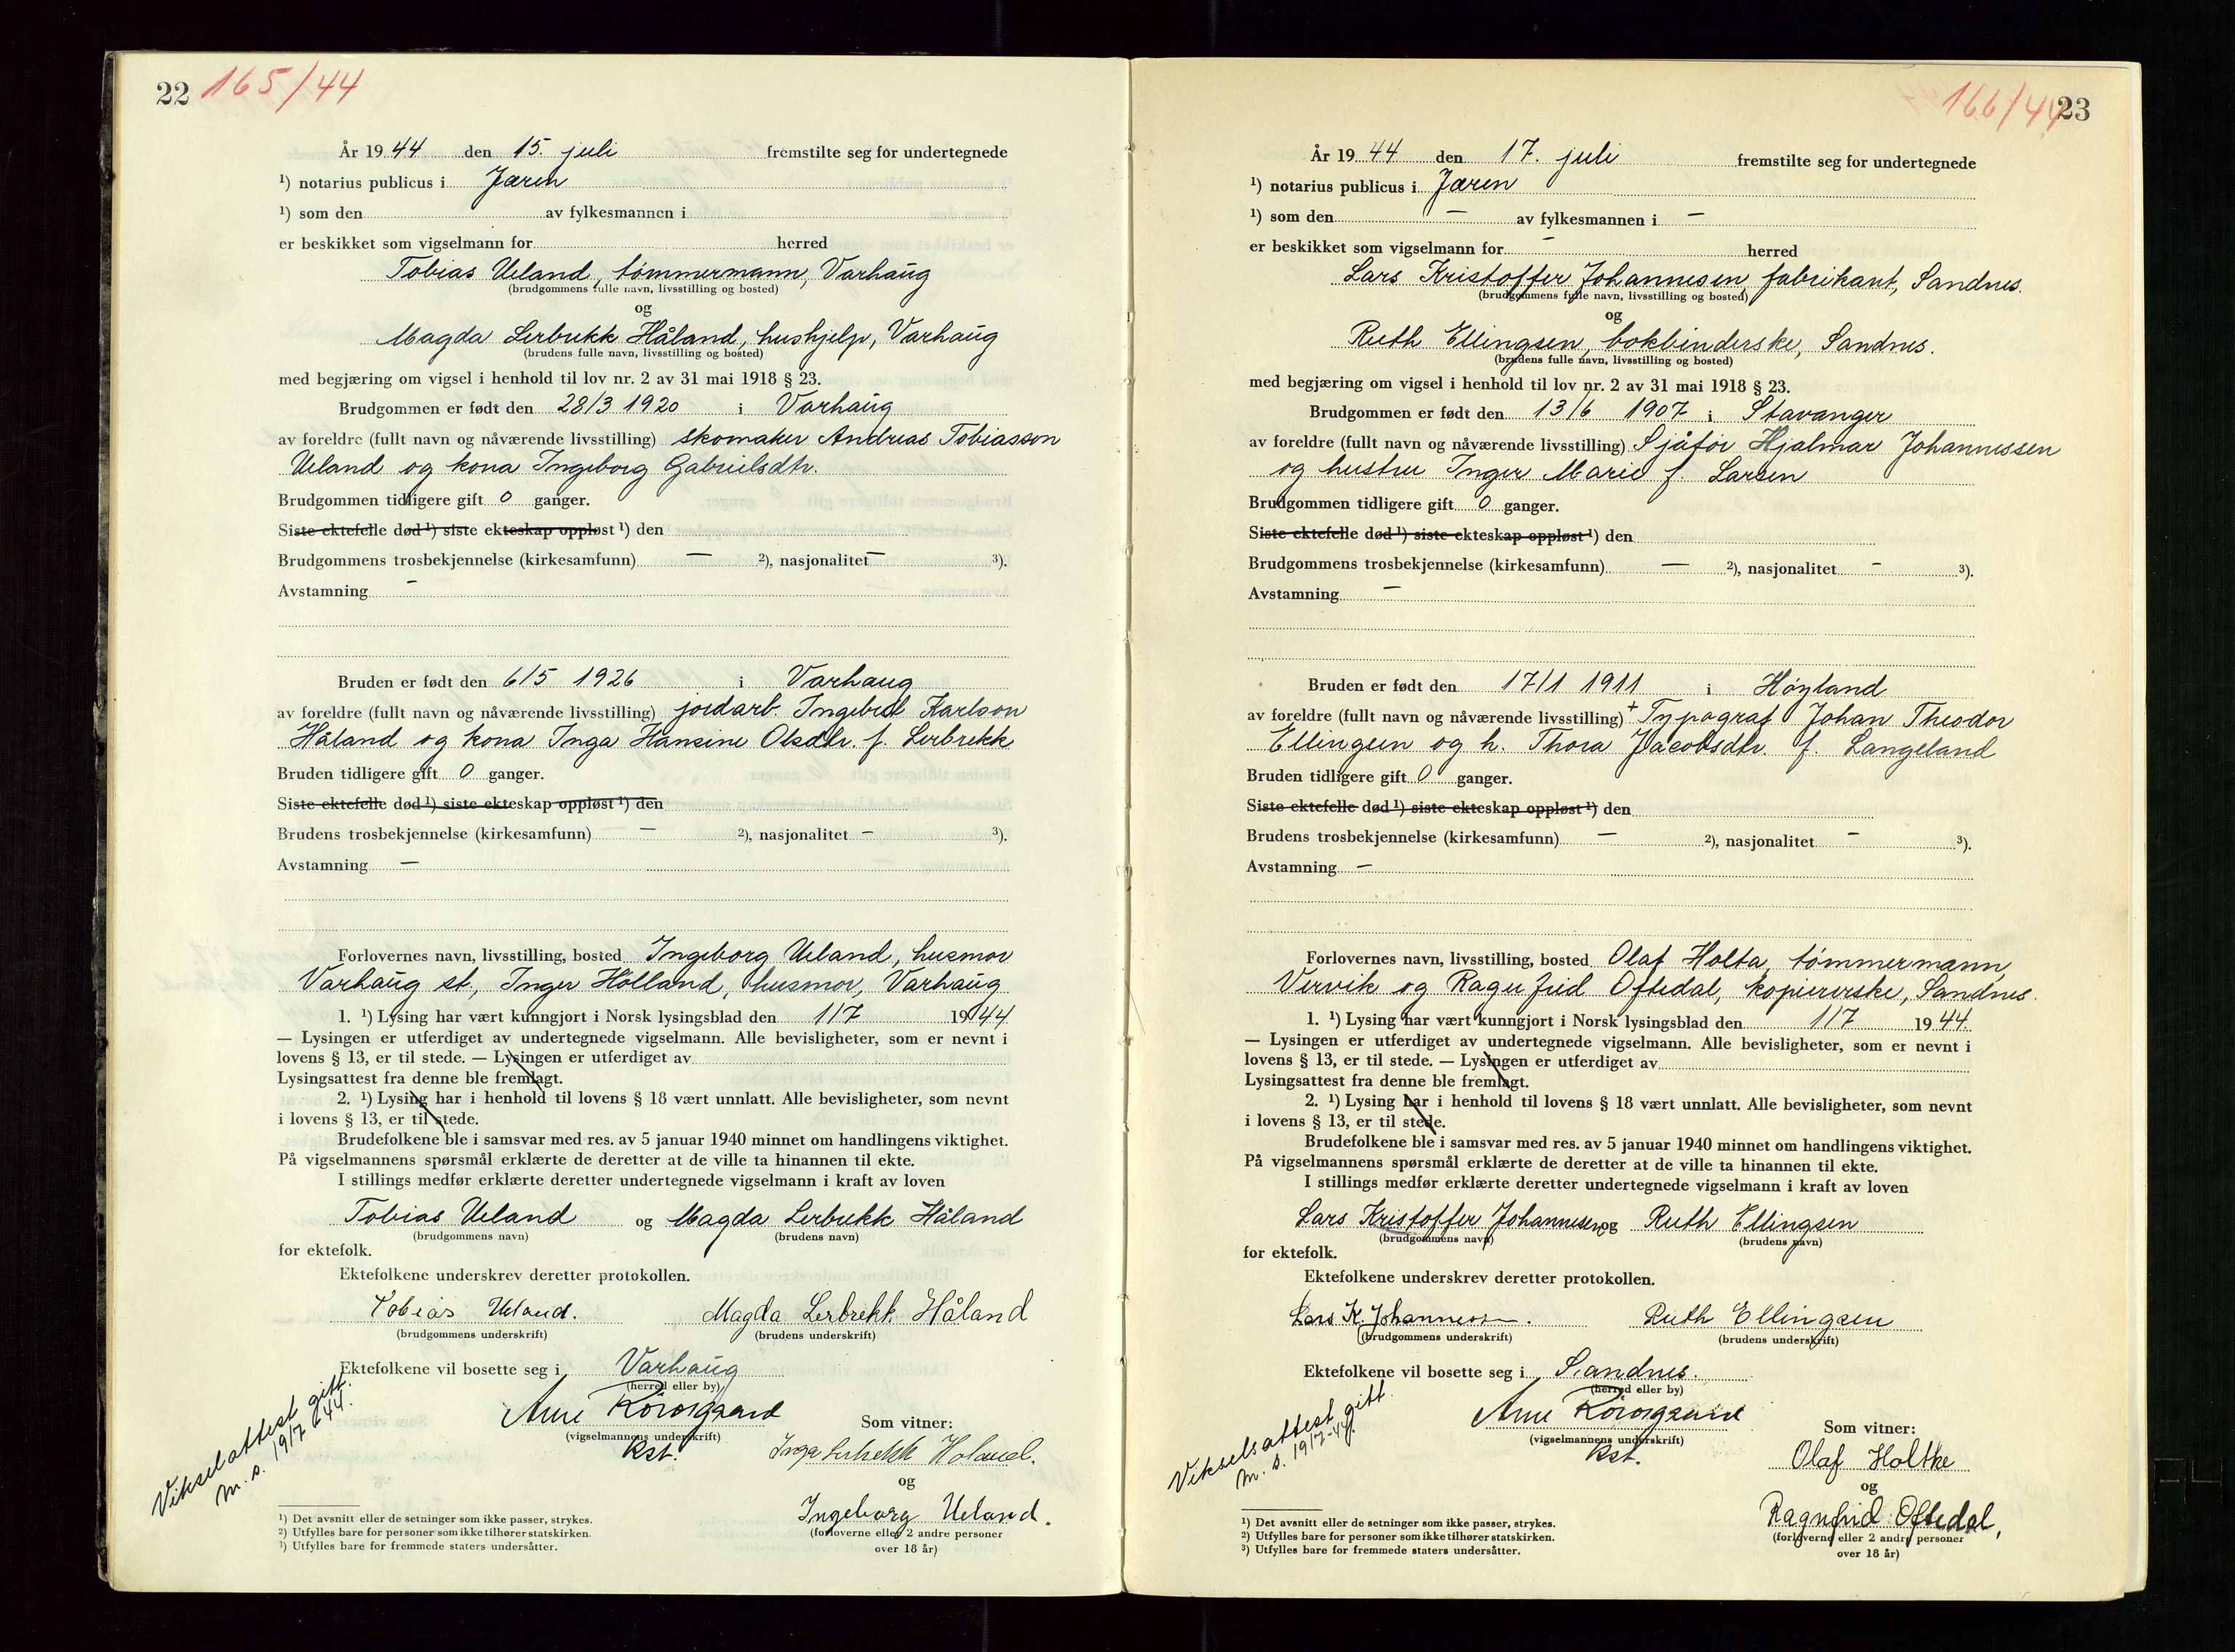 22 165/44
År 1944 den 15. juli fremstilte seg for undertegnede
¹) notarius publicus i Jæren
¹) som den av fylkesmannen i
er beskikket som vigselmann for herred
Tobias Ueland, tømmermann, Varhaug
(brudgommens fulle navn, livsstilling og bosted)
og
Magda Lerbrekk Håland, hushjelp, Varhaug
(brudens fulle navn, livsstilling og bosted)
med begjæring om vigsel i henhold til lov nr. 2 av 31 mai 1918 § 23.
Brudgommen er født den 28/3 1920 i Varhaug
av foreldre (fullt navn og nåværende livsstilling) skomaker Andreas Tobiasson
Ueland og kona Ingeborg Gabrielsdtr.
Brudgommen tidligere gift 0 ganger.
Siste ektefelle død ¹) siste ekteskap oppløst ¹) den
Brudgommens trosbekjennelse (kirkesamfunn) — ²), nasjonalitet — ³).
Avstamning –
Bruden er født den 6/5 1926 i Varhaug
av foreldre (fullt navn og nåværende livsstilling) jordarb. Ingebret Karlson
Håland og kona Inga Hansine Olsdtr. f. Lerbrekk
Bruden tidligere gift 0 ganger.
Siste ektefelle død ¹) siste ekteskap oppløst ¹) den
Brudens trosbekjennelse (kirkesamfunn) — ²), nasjonalitet – ³).
Avstamning —
Forlovernes navn, livsstilling, bosted Ingeborg Ueland, husmor
Varhaug st, Inger Hølland, husmor, Varhaug
1. ¹) Lysing har vært kunngjort i Norsk lysingsblad den 1/7 1944
— Lysingen er utferdiget av undertegnede vigselmann. Alle bevisligheter, som er nevnt i
lovens § 13, er til stede. — Lysingen er utferdiget av
Lysingsattest fra denne ble fremlagt.
2. ¹) Lysing har i henhold til lovens § 18 vært unnlatt. Alle bevisligheter, som nevnt
i lovens § 13, er til stede.
Brudefolkene ble i samsvar med res. av 5 januar 1940 minnet om handlingens viktighet.
På vigselmannens spørsmål erklærte de deretter at de ville ta hinannen til ekte.
I stillings medfør erklærte deretter undertegnede vigselmann i kraft av loven
Tobias Ueland og Magda Lerbrekk Håland
(brudgommens navn) (brudens navn)
for ektefolk.
Ektefolkene underskrev deretter protokollen.
Tobias Ueland. Magda Lerbrekk Håland
(brudgommens underskrift) (brudens underskrift)
Ektefolkene vil bosette seg i Varhaug
(herred eller by)
Vikselattest gitt.
m. s. 19/7 44.
Arne
(vigselmannens underskrift)
Kst.
Som vitner:
Inga Lerbrekk Håland.
og
Ingeborg Ueland.
(forloverne eller 2 andre personer
over 18 år)
¹) Det avsnitt eller de setninger som ikke passer, strykes.
²) Utfylles bare for personer som ikke tilhører statskirken.
³) Utfylles bare for fremmede staters undersåtter.
166/44 23
År 1944 den 17. juli fremstilte seg for undertegnede
¹) notarius publicus i Jæren
¹) som den — av fylkesmannen i —
er beskikket som vigselmann for – herred
Lars Kristoffer Johannesen, fabrikant, Sandnes.
(brudgommens fulle navn, livsstilling og bosted)
og
Ruth Ellingsen, bokbinderske, Sandnes.
(brudens fulle navn, livsstilling og bosted)
med begjæring om vigsel i henhold til lov nr. 2 av 31 mai 1918 § 23.
Brudgommen er født den 13/6 1907 i Stavanger
av foreldre (fullt navn og nåværende livsstilling) Sjåfør Hjalmar Johannessen
og hustru Inger Marie f. Larsen
Brudgommen tidligere gift 0 ganger.
Siste ektefelle død ¹) siste ekteskap oppløst ¹) den
Brudgommens trosbekjennelse (kirkesamfunn) — ²), nasjonalitet – ³).
Avstamning —
Bruden er født den 17/1 1911 i Høyland
av foreldre (fullt navn og nåværende livsstilling) + Typograf Johan Theodor
Ellingsen og h. Thora Jacobsdtr. f. Langeland
Bruden tidligere gift 0 ganger.
Siste ektefelle død ¹) siste ekteskap oppløst ¹) den
Brudens trosbekjennelse (kirkesamfunn) — ²), nasjonalitet – ³).
Avstamning —
Forlovernes navn, livsstilling, bosted Olaf Holta, tømmermann,
Vervik og Ragnfrid Oftedal, kopiererske, Sandnes.
1. ¹) Lysing har vært kunngjort i Norsk lysingsblad den 1/7 1944
— Lysingen er utferdiget av undertegnede vigselmann. Alle bevisligheter, som er nevnt i
lovens § 13, er til stede. — Lysingen er utferdiget av
Lysingsattest fra denne ble fremlagt.
2. ¹) Lysing har i henhold til lovens § 18 vært unnlatt. Alle bevisligheter, som nevnt
i lovens § 13, er til stede.
Brudefolkene ble i samsvar med res. av 5 januar 1940 minnet om handlingens viktighet.
På vigselmannens spørsmål erklærte de deretter at de ville ta hinannen til ekte.
I stillings medfør erklærte deretter undertegnede vigselmann i kraft av loven
Lars Kristoffer Johannesen og Ruth Ellingsen
(brudgommens navn) (brudens navn)
for ektefolk.
Ektefolkene underskrev deretter protokollen.
Lars K. Johannesen. Ruth Ellingsen
(brudgommens underskrift) (brudens underskrift)
Ektefolkene vil bosette seg i Sandnes.
(herred eller by)
Vikselsattest gitt
m. s. 19/7-44.
Arne
(vigselmannens underskrift)
Kst.
Som vitner:
Olaf Holtke
og
Ragnfrid Oftedal,
(forloverne eller 2 andre personer
over 18 år)
¹) Det avsnitt eller de setninger som ikke passer, strykes.
²) Utfylles bare for personer som ikke tilhører statskirken.
³) Utfylles bare for fremmede staters undersåtter.